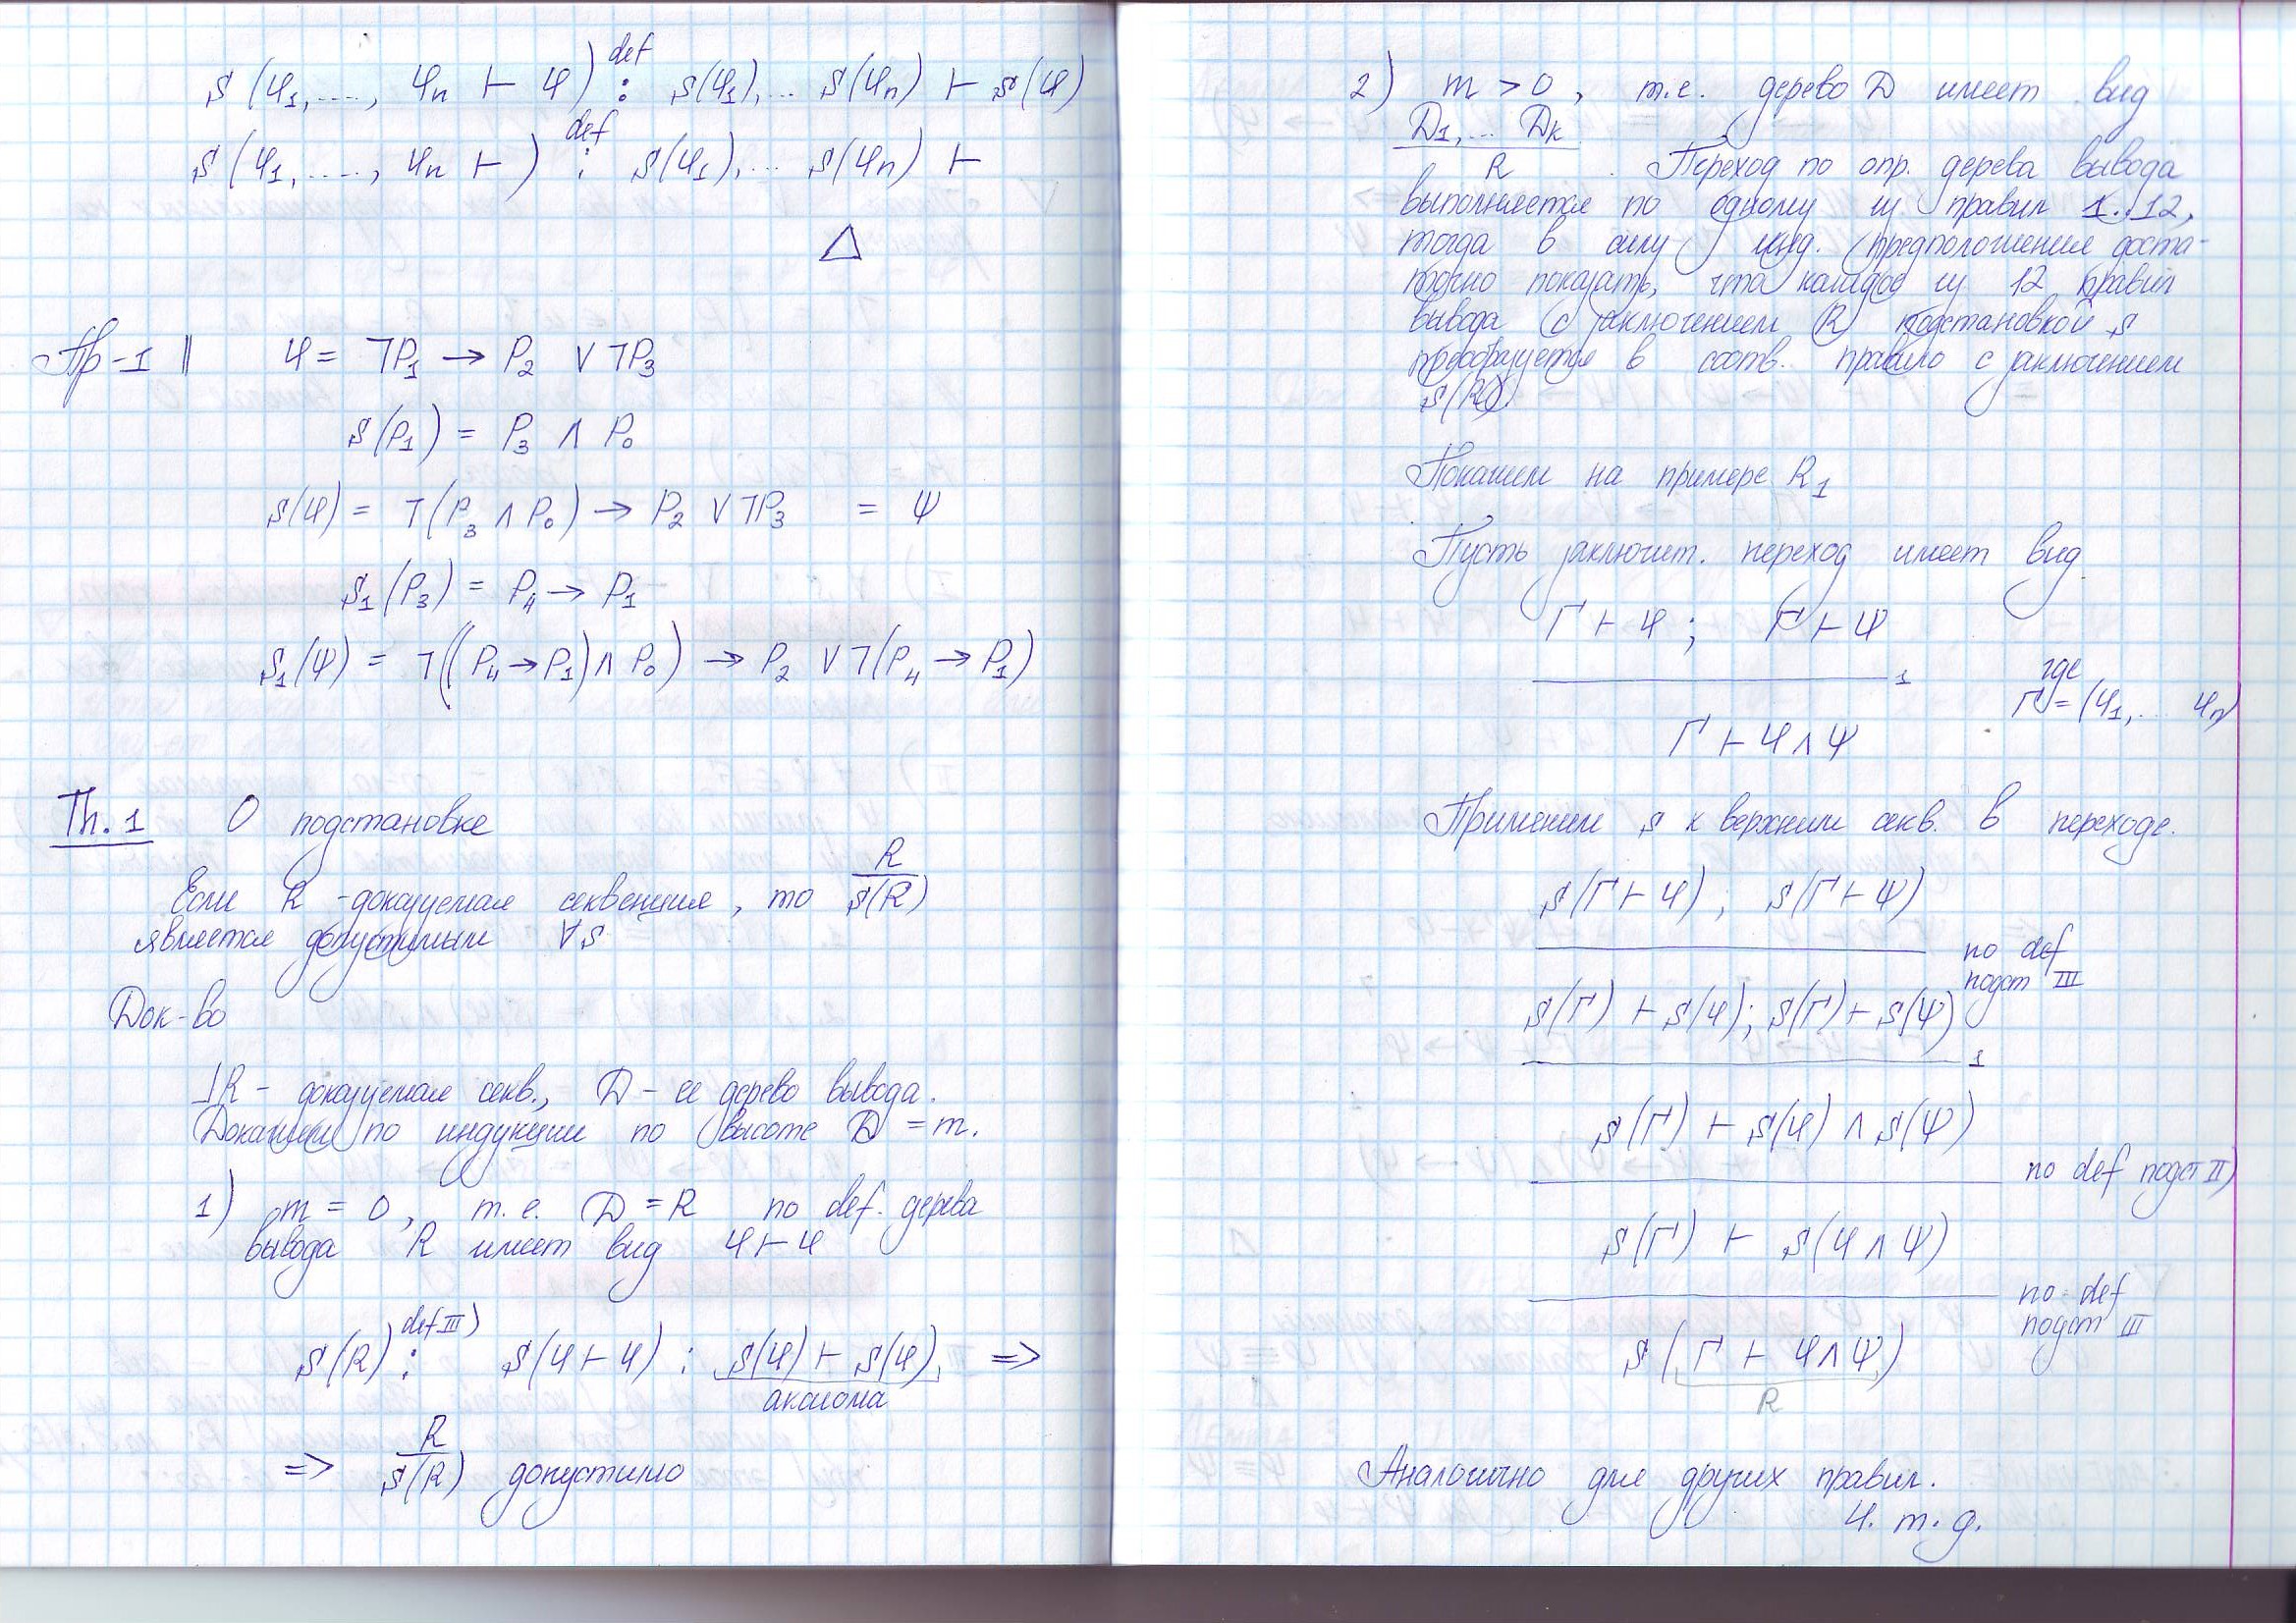 S(φ₁,...., φₙ ⊢ φ) def : S(φ₁),... S(φₙ) ⊢ S(φ)
S(φ₁,...., φₙ ⊢ ) def : S(φ₁),... S(φₙ) ⊢
△
Пр-1 || φ = ¬P₁ → P₂ ∨ ¬P₃
S(P₁) = P₃ ∧ P₀
S(φ) = ¬(P₃ ∧ P₀) → P₂ ∨ ¬P₃ = ψ
S₁(P₃) = P₄ → P₁
S₁(ψ) = ¬((P₄ → P₁) ∧ P₀) → P₂ ∨ ¬(P₄ → P₁)
Th. 1 О подстановке
Если R - доказуемая секвенция, то R/S(R)
является допустимым ∀S
Док-во
⅃R - доказуемая секв., D - ее дерево вывода.
Докажем по индукции по высоте D = m.
1) m = 0, т.е. D = R по def. дерева
вывода R имеет вид φ ⊢ φ
S(R) def III) : S(φ ⊢ φ) : S(φ) ⊢ S(φ) ⇒
аксиома
⇒ R/S(R) допустимо
2) m > 0, т.е. дерево D имеет вид
D₁,... Dₖ
R . Переход по опр. дерева вывода
выполняется по одному из правил 1..12,
тогда в силу инд. предположения доста-
точно показать, что каждое из 12 правил
вывода с заключением R подстановкой S
преобразуется в соотв. правило с заключением
S(R).
Покажем на примере R₁
Пусть заключит. переход имеет вид
Γ ⊢ φ ; Γ ⊢ ψ
1 где
Γ = (φ₁,... φₙ)
Γ ⊢ φ ∧ ψ
Применим S к верхним секв. в переходе.
S(Γ ⊢ φ) ; S(Γ ⊢ ψ)
по def
подст III
S(Γ) ⊢ S(φ); S(Γ) ⊢ S(ψ)
1
S(Γ) ⊢ S(φ) ∧ S(ψ)
по def подст II)
S(Γ) ⊢ S(φ ∧ ψ)
по def
подст III
S(Γ ⊢ φ ∧ ψ)
R
Аналогично для других правил.
Ч. т. д.